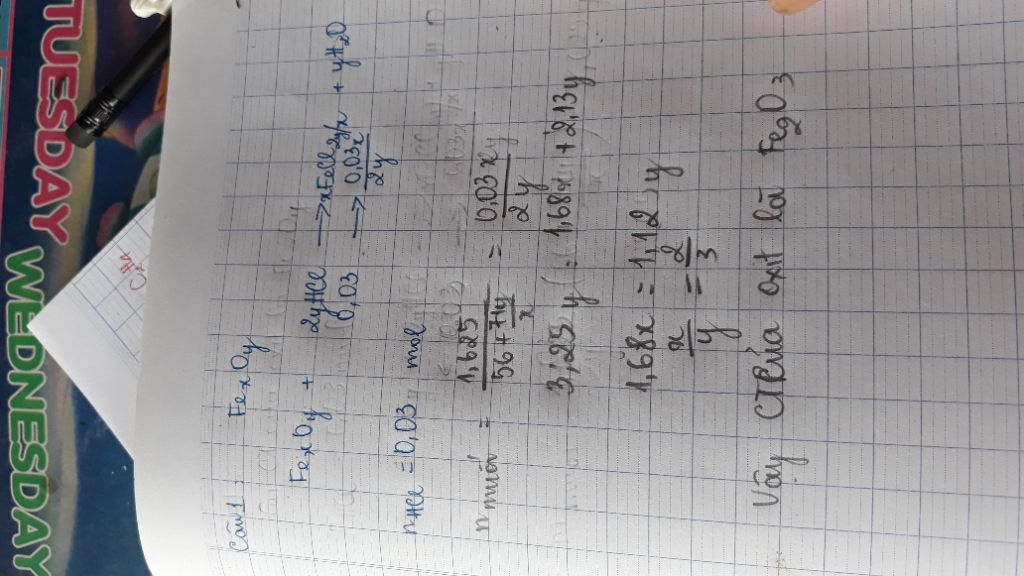 TUESDAY
WEDNESDAY
C₂H₂
Câu 1: FexOy
FexOy + 2yHCl → xFeCl2y/x + yH2O
0,03 → 0,03x/2y
nHCl = 0,03 mol
n muối = 1,625/(56+71y/x) = 0,03x/2y
3,25 y = 1,68x + 2,13y
1,68x = 1,12 y
x/y = 2/3
Vậy CTPT của oxit là Fe2O3